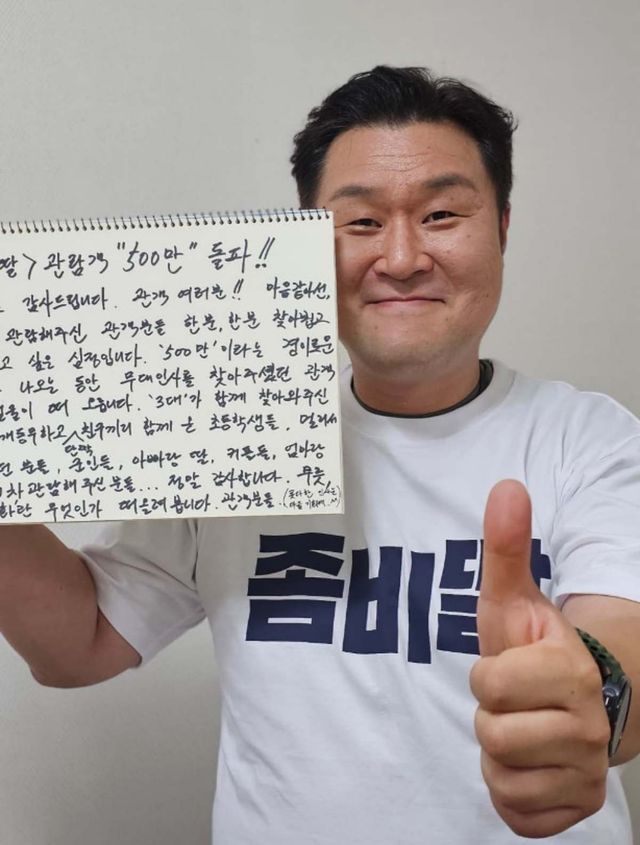 딸> 관람객 "500만" 돌파!!
감사드립니다. 관객 여러분!! 마음같아선,
관람해주신 관객분들 한분, 한분 찾아뵙고
고 싶은 심정입니다. '500만'이라는 경이로운
나오는 동안 무대인사를 찾아주셨던 관객
떠오릅니다. '3대'가 함께 찾아와주신
어깨동무하고 단짝 친구끼리 함께 온 초등학생들, 멀리서
분들, 군인들, 아빠랑 딸, 커플들, 엄마랑
차 관람해 주신 분들... 정말 감사합니다. 무릇
란 무엇인가 떠올려 봅니다. 관객분들.
좀비딸